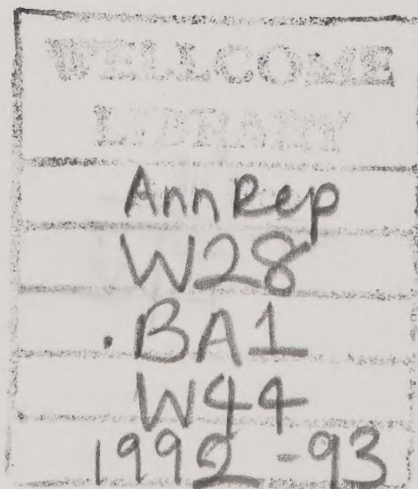 WELLCOME
LIBRARY
AnnRep
W28
.BA1
W44
1992-93